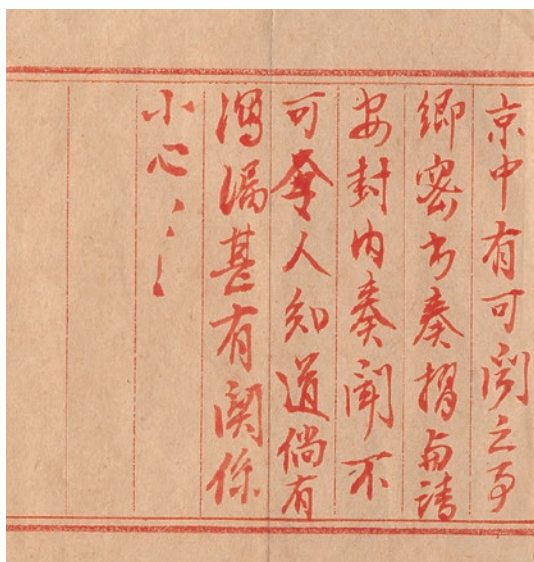 京中有可聞之事
卿密書奏摺與請
安封內奏聞不
可令人知道倘有
瀉漏甚有關係
小心々々